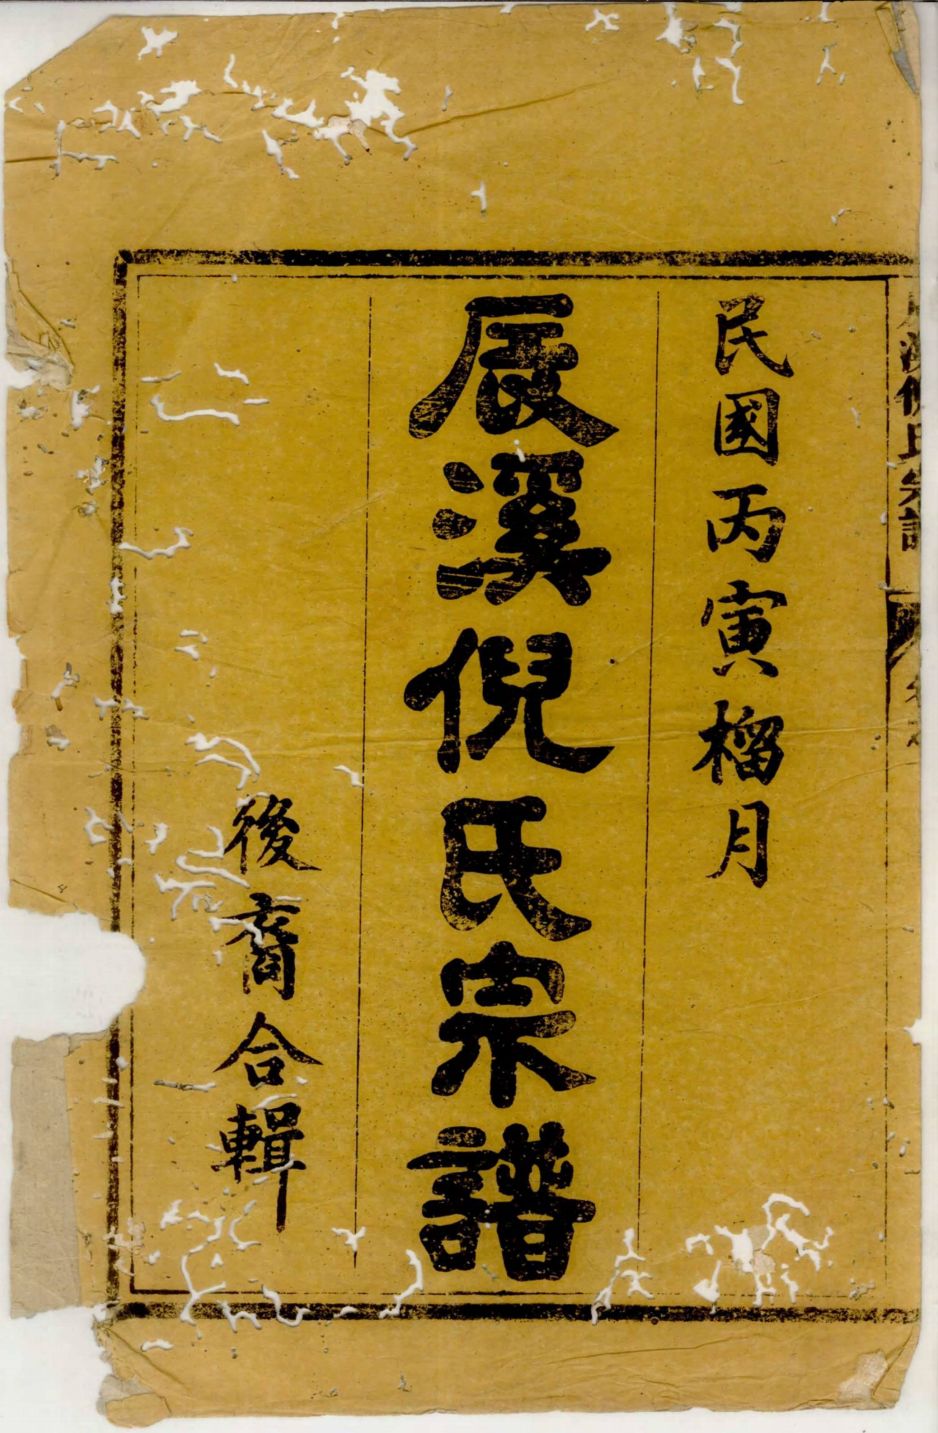 民國丙寅榴月
辰溪倪氏宗譜
後裔合輯